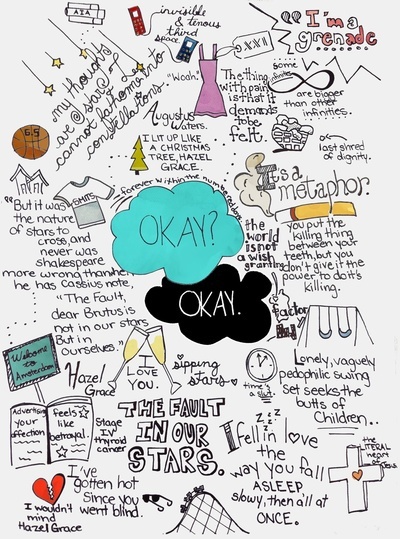 AIA
invisible
& tenous
third
space
"I'm a
grenade
XXII
my thoughts
are stars I
cannot fathom into
constellations.
"Woah."
The thing
with pain
is that it
demands
to be
felt.
some
infinities
are bigger
than other
infinities.
Augustus
Waters.
6.5
I LIT UP LIKE
A CHRISTMAS
TREE, HAZEL
GRACE.
last shred
of dignity.
SMITS
forever within the numbered days
It's a
metaphor.
"But it was
the nature
of stars to
cross, and
never was
Shakespeare
more wrong than when
he has Cassius note,
"The Fault,
dear Brutus is
not in our stars
But in
ourselves."
OKAY?
OKAY.
the
world
is not
a wish
granting
factory
you put the
killing thing
between your
teeth, but you
don't give it the
power to do its
killing.
Welcome
to
Amsterdam
Hazel
Grace
I
LOVE
YOU.
sipping
stars
time's
a slut.
Lonely, vaguely
pedophilic swing
set seeks the
butts of
children..
Advertising
your
affection
feels
like
betrayal.
Stage
IV
thyroid
cancer
THE FAULT
IN OUR
STARS.
z z z z
I fell in love
the
way you fall
ASLEEP
slowy, then all at
ONCE.
the
LITERAL
heart
of Jesus
I've
gotten hot
since you
went blind.
I wouldn't
mind
Hazel Grace